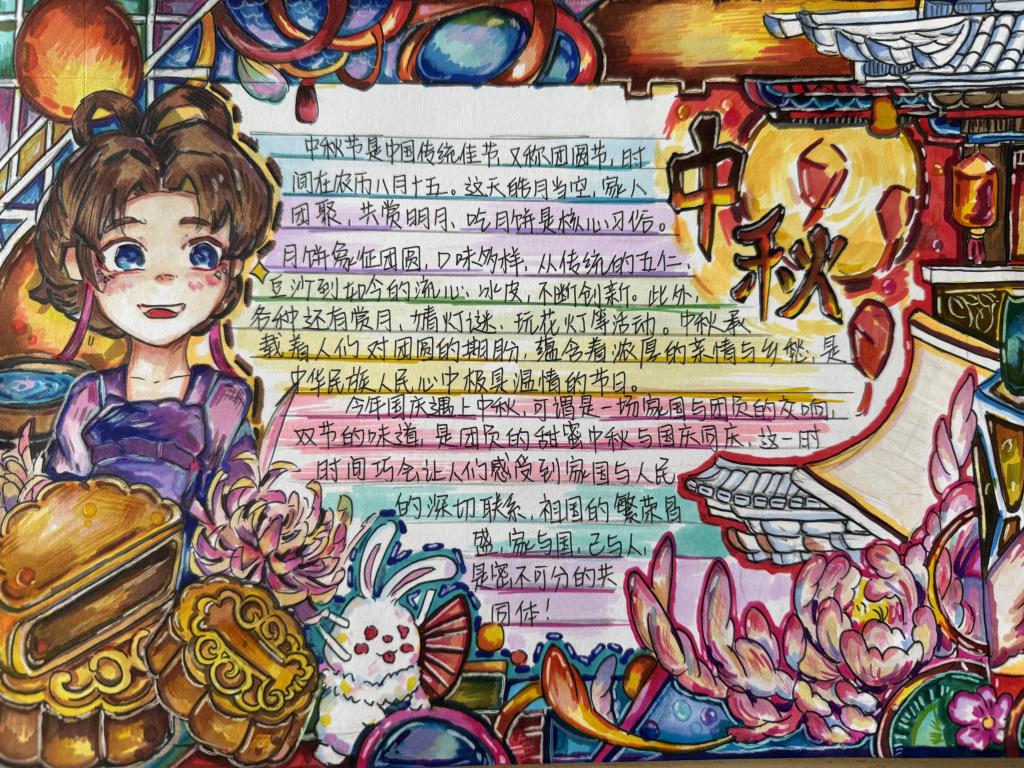 中秋
中秋节是中国传统佳节,又称团圆节,时
间在农历八月十五。这天皓月当空,家人
团聚,共赏明月、吃月饼是核心习俗。
月饼象征团圆,口味多样,从传统的五仁、
豆沙到如今的流心、冰皮,不断创新。此外,
各种还有赏月、猜灯谜、玩花灯等活动。中秋承
载着人们对团圆的期盼,蕴含着浓厚的亲情与乡愁,是
中华民族人民心中极具温情的节日。
今年国庆遇上中秋,可谓是一场家国与团员的交响,
双节的味道,是团员的甜蜜中秋与国庆同庆,这一时
时间巧合让人们感受到家国与人民
的深切联系,祖国的繁荣昌
盛,家与国,己与人,
是密不可分的共
同体!